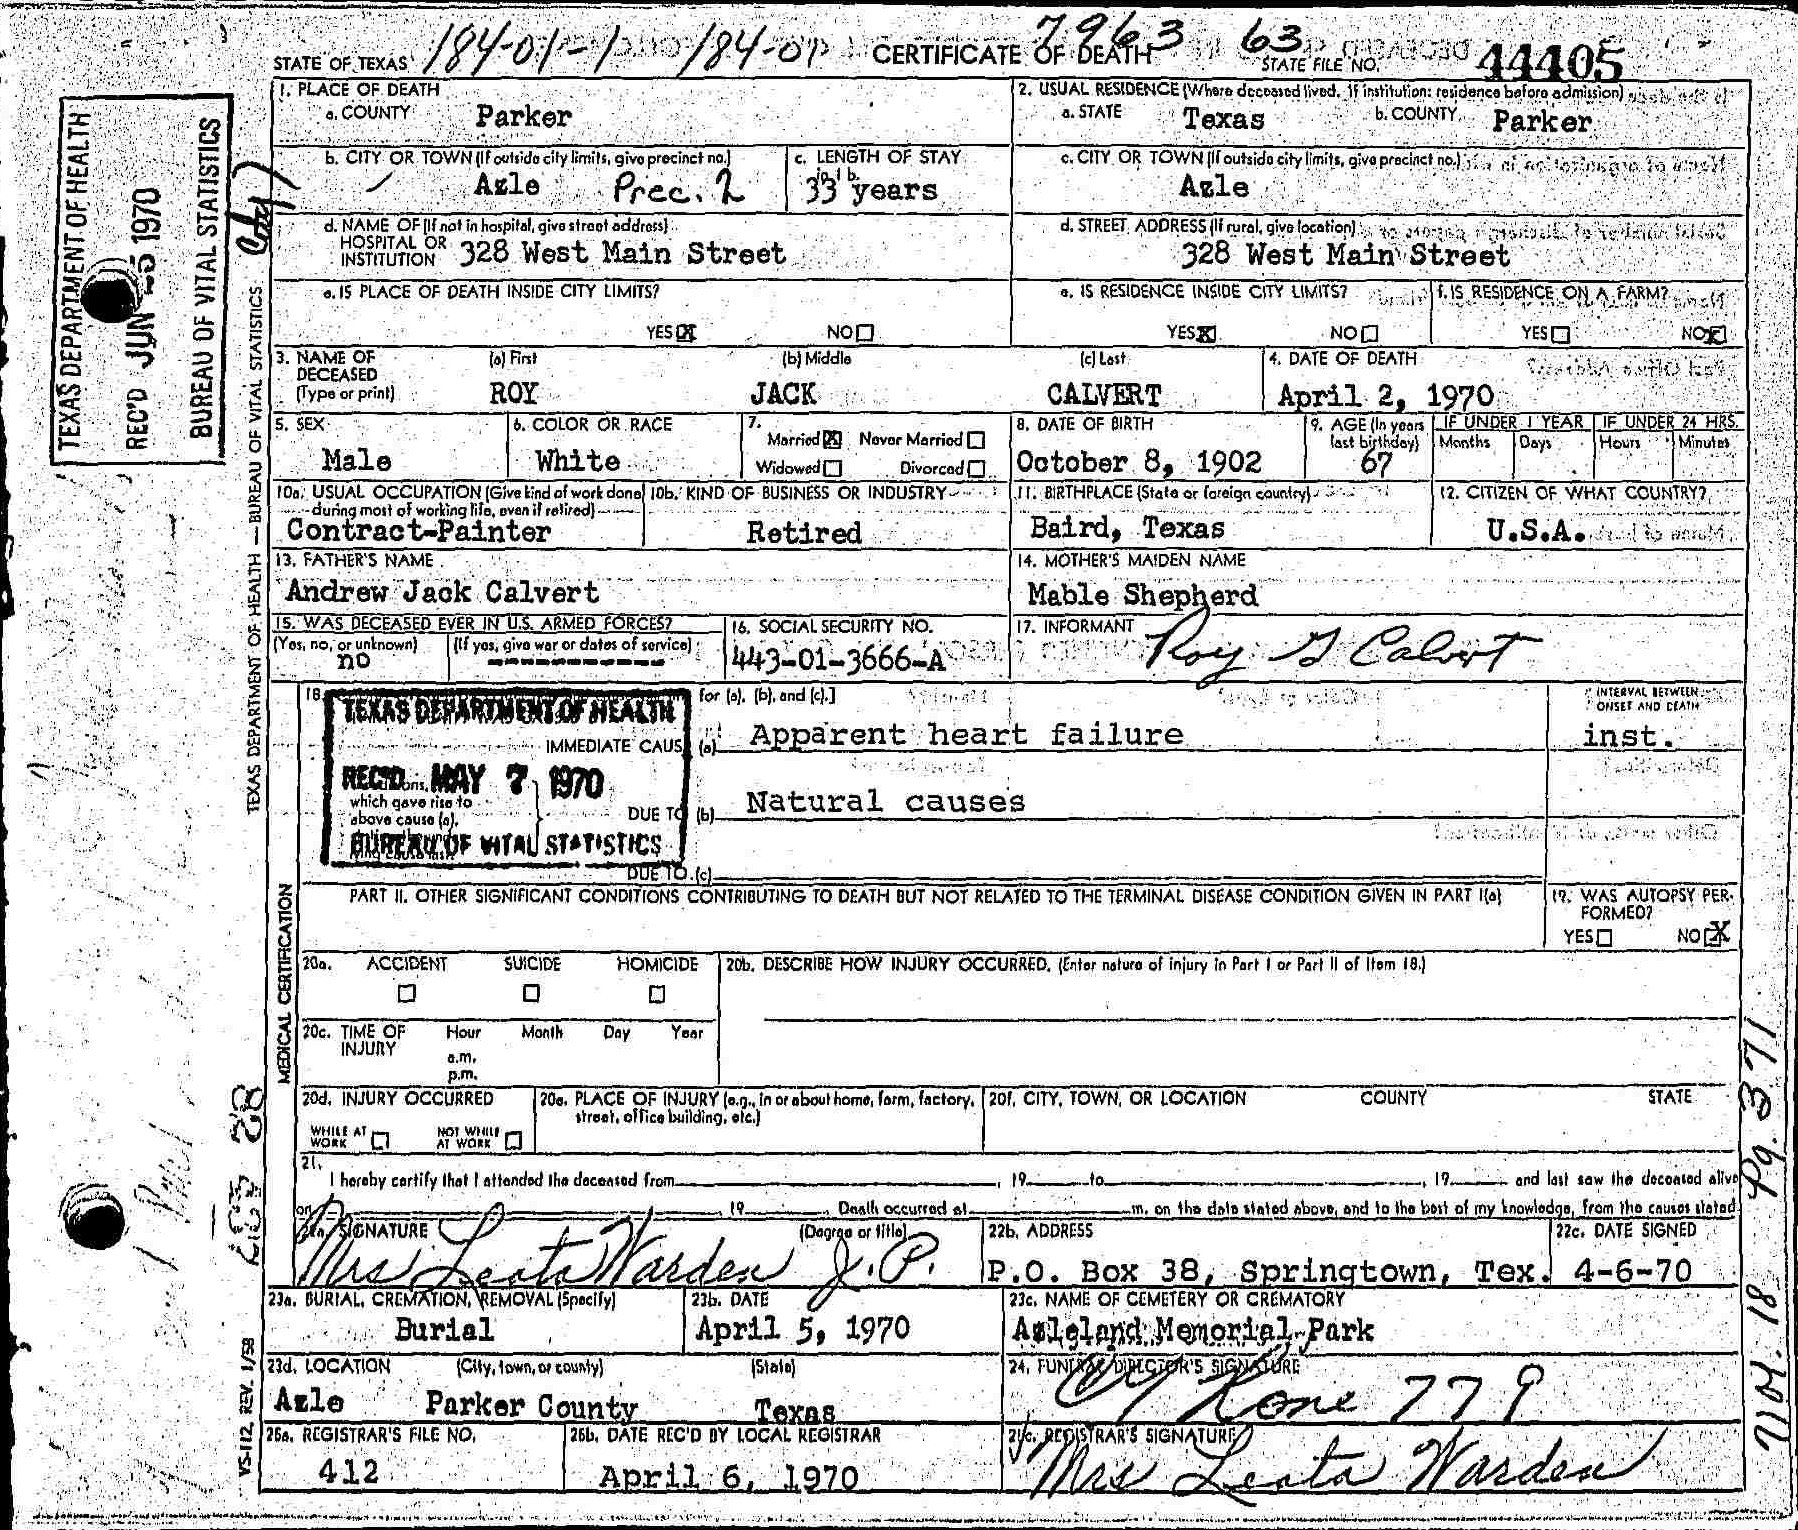 184-01-1 184-01 7963 63
STATE OF TEXAS CERTIFICATE OF DEATH STATE FILE NO. 44405
1. PLACE OF DEATH
a. COUNTY Parker
2. USUAL RESIDENCE (Where deceased lived. If institution: residence before admission)
a. STATE Texas b. COUNTY Parker
b. CITY OR TOWN (If outside city limits, give precinct no.) Azle Prec. 2
c. LENGTH OF STAY in 1 b. 33 years
c. CITY OR TOWN (If outside city limits, give precinct no.) Azle
d. NAME OF (If not in hospital, give street address)
HOSPITAL OR
INSTITUTION 328 West Main Street
d. STREET ADDRESS (If rural, give location)
328 West Main Street
e. IS PLACE OF DEATH INSIDE CITY LIMITS?
YES X NO
e. IS RESIDENCE INSIDE CITY LIMITS?
YES X NO
f. IS RESIDENCE ON A FARM?
YES NO X
3. NAME OF DECEASED (Type or print)
(a) First (b) Middle (c) Last
ROY JACK CALVERT
4. DATE OF DEATH
April 2, 1970
5. SEX
Male
6. COLOR OR RACE
White
7. Married X Never Married
Widowed Divorced
8. DATE OF BIRTH
October 8, 1902
9. AGE (In years last birthday)
67
IF UNDER 1 YEAR IF UNDER 24 HRS.
Months Days Hours Minutes
10a. USUAL OCCUPATION (Give kind of work done during most of working life, even if retired)
Contract-Painter
10b. KIND OF BUSINESS OR INDUSTRY
Retired
11. BIRTHPLACE (State or foreign country)
Baird, Texas
12. CITIZEN OF WHAT COUNTRY?
U.S.A.
13. FATHER'S NAME
Andrew Jack Calvert
14. MOTHER'S MAIDEN NAME
Mable Shepherd
15. WAS DECEASED EVER IN U.S. ARMED FORCES?
(Yes, no, or unknown) (If yes, give war or dates of service)
no -------------
16. SOCIAL SECURITY NO.
443-01-3666-A
17. INFORMANT
Roy G Calvert
18.
for (a), (b), and (c).]
INTERVAL BETWEEN
ONSET AND DEATH
TEXAS DEPARTMENT OF HEALTH
REC'D. MAY 7 1970
BUREAU OF VITAL STATISTICS
IMMEDIATE CAUS (a) Apparent heart failure inst.
which gave rise to
above cause (a),
DUE TO (b) Natural causes
DUE TO (c)
PART II. OTHER SIGNIFICANT CONDITIONS CONTRIBUTING TO DEATH BUT NOT RELATED TO THE TERMINAL DISEASE CONDITION GIVEN IN PART I(a)
19. WAS AUTOPSY PER-
FORMED?
YES NO X
20a. ACCIDENT SUICIDE HOMICIDE
20b. DESCRIBE HOW INJURY OCCURRED. (Enter nature of injury in Part I or Part II of Item 18.)
20c. TIME OF INJURY Hour Month Day Year
a.m.
p.m.
20d. INJURY OCCURRED
WHILE AT WORK NOT WHILE AT WORK
20e. PLACE OF INJURY (e.g., in or about home, farm, factory,
street, office building, etc.)
20f. CITY, TOWN, OR LOCATION COUNTY STATE
21.
I hereby certify that I attended the deceased from , 19 to , 19 and last saw the deceased alive
on , 19 . Death occurred at m. on the date stated above, and to the best of my knowledge, from the causes stated
22a. SIGNATURE (Degree or title)
Mrs Leota Warden J.P.
22b. ADDRESS
P.O. Box 38, Springtown, Tex.
22c. DATE SIGNED
4-6-70
23a. BURIAL, CREMATION, REMOVAL (Specify)
Burial
23b. DATE
April 5, 1970
23c. NAME OF CEMETERY OR CREMATORY
Azleland Memorial Park
23d. LOCATION (City, town, or county) (State)
Azle Parker County Texas
24. FUNERAL DIRECTOR'S SIGNATURE
779
25a. REGISTRAR'S FILE NO.
412
25b. DATE REC'D BY LOCAL REGISTRAR
April 6, 1970
25c. REGISTRAR'S SIGNATURE
Mrs Leota Warden
TEXAS DEPARTMENT OF HEALTH
REC'D JUN 1970
BUREAU OF VITAL STATISTICS
TEXAS DEPARTMENT OF HEALTH — BUREAU OF VITAL STATISTICS
MEDICAL CERTIFICATION
VS-112 REV. 1/58
Vol. 18 Pg. 371